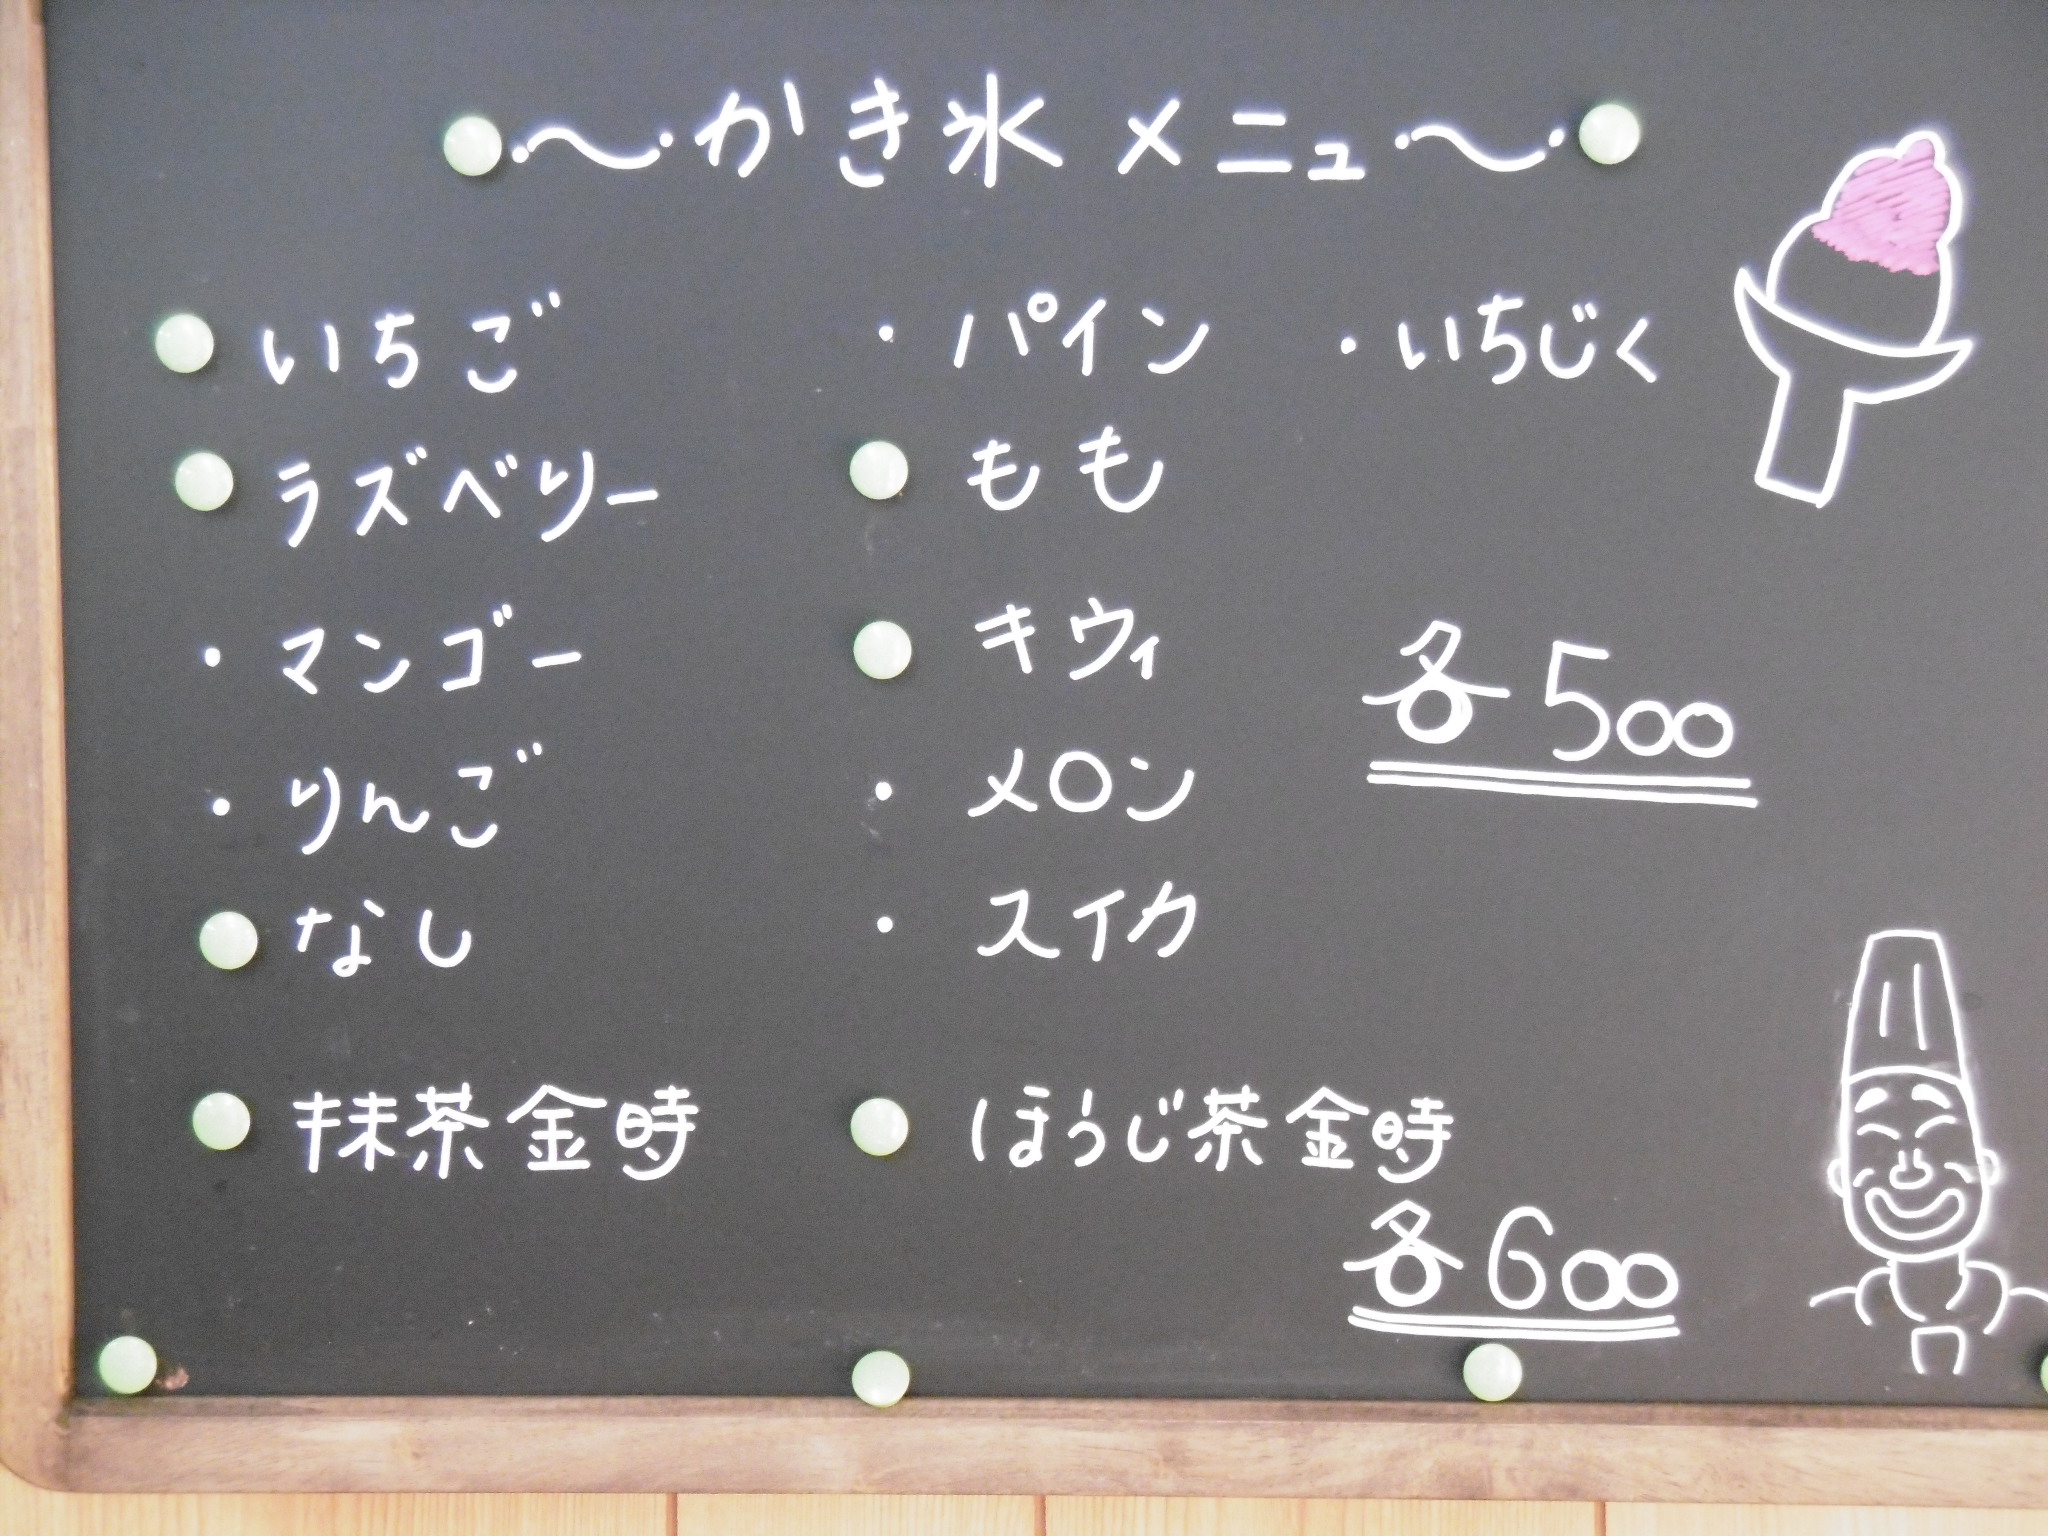 〜かき氷 メニュー〜
いちご ・パイン ・いちじく
ラズベリー もも
・マンゴー キウィ
各500
・りんご ・メロン
なし ・スイカ
抹茶金時 ほうじ茶金時
各600